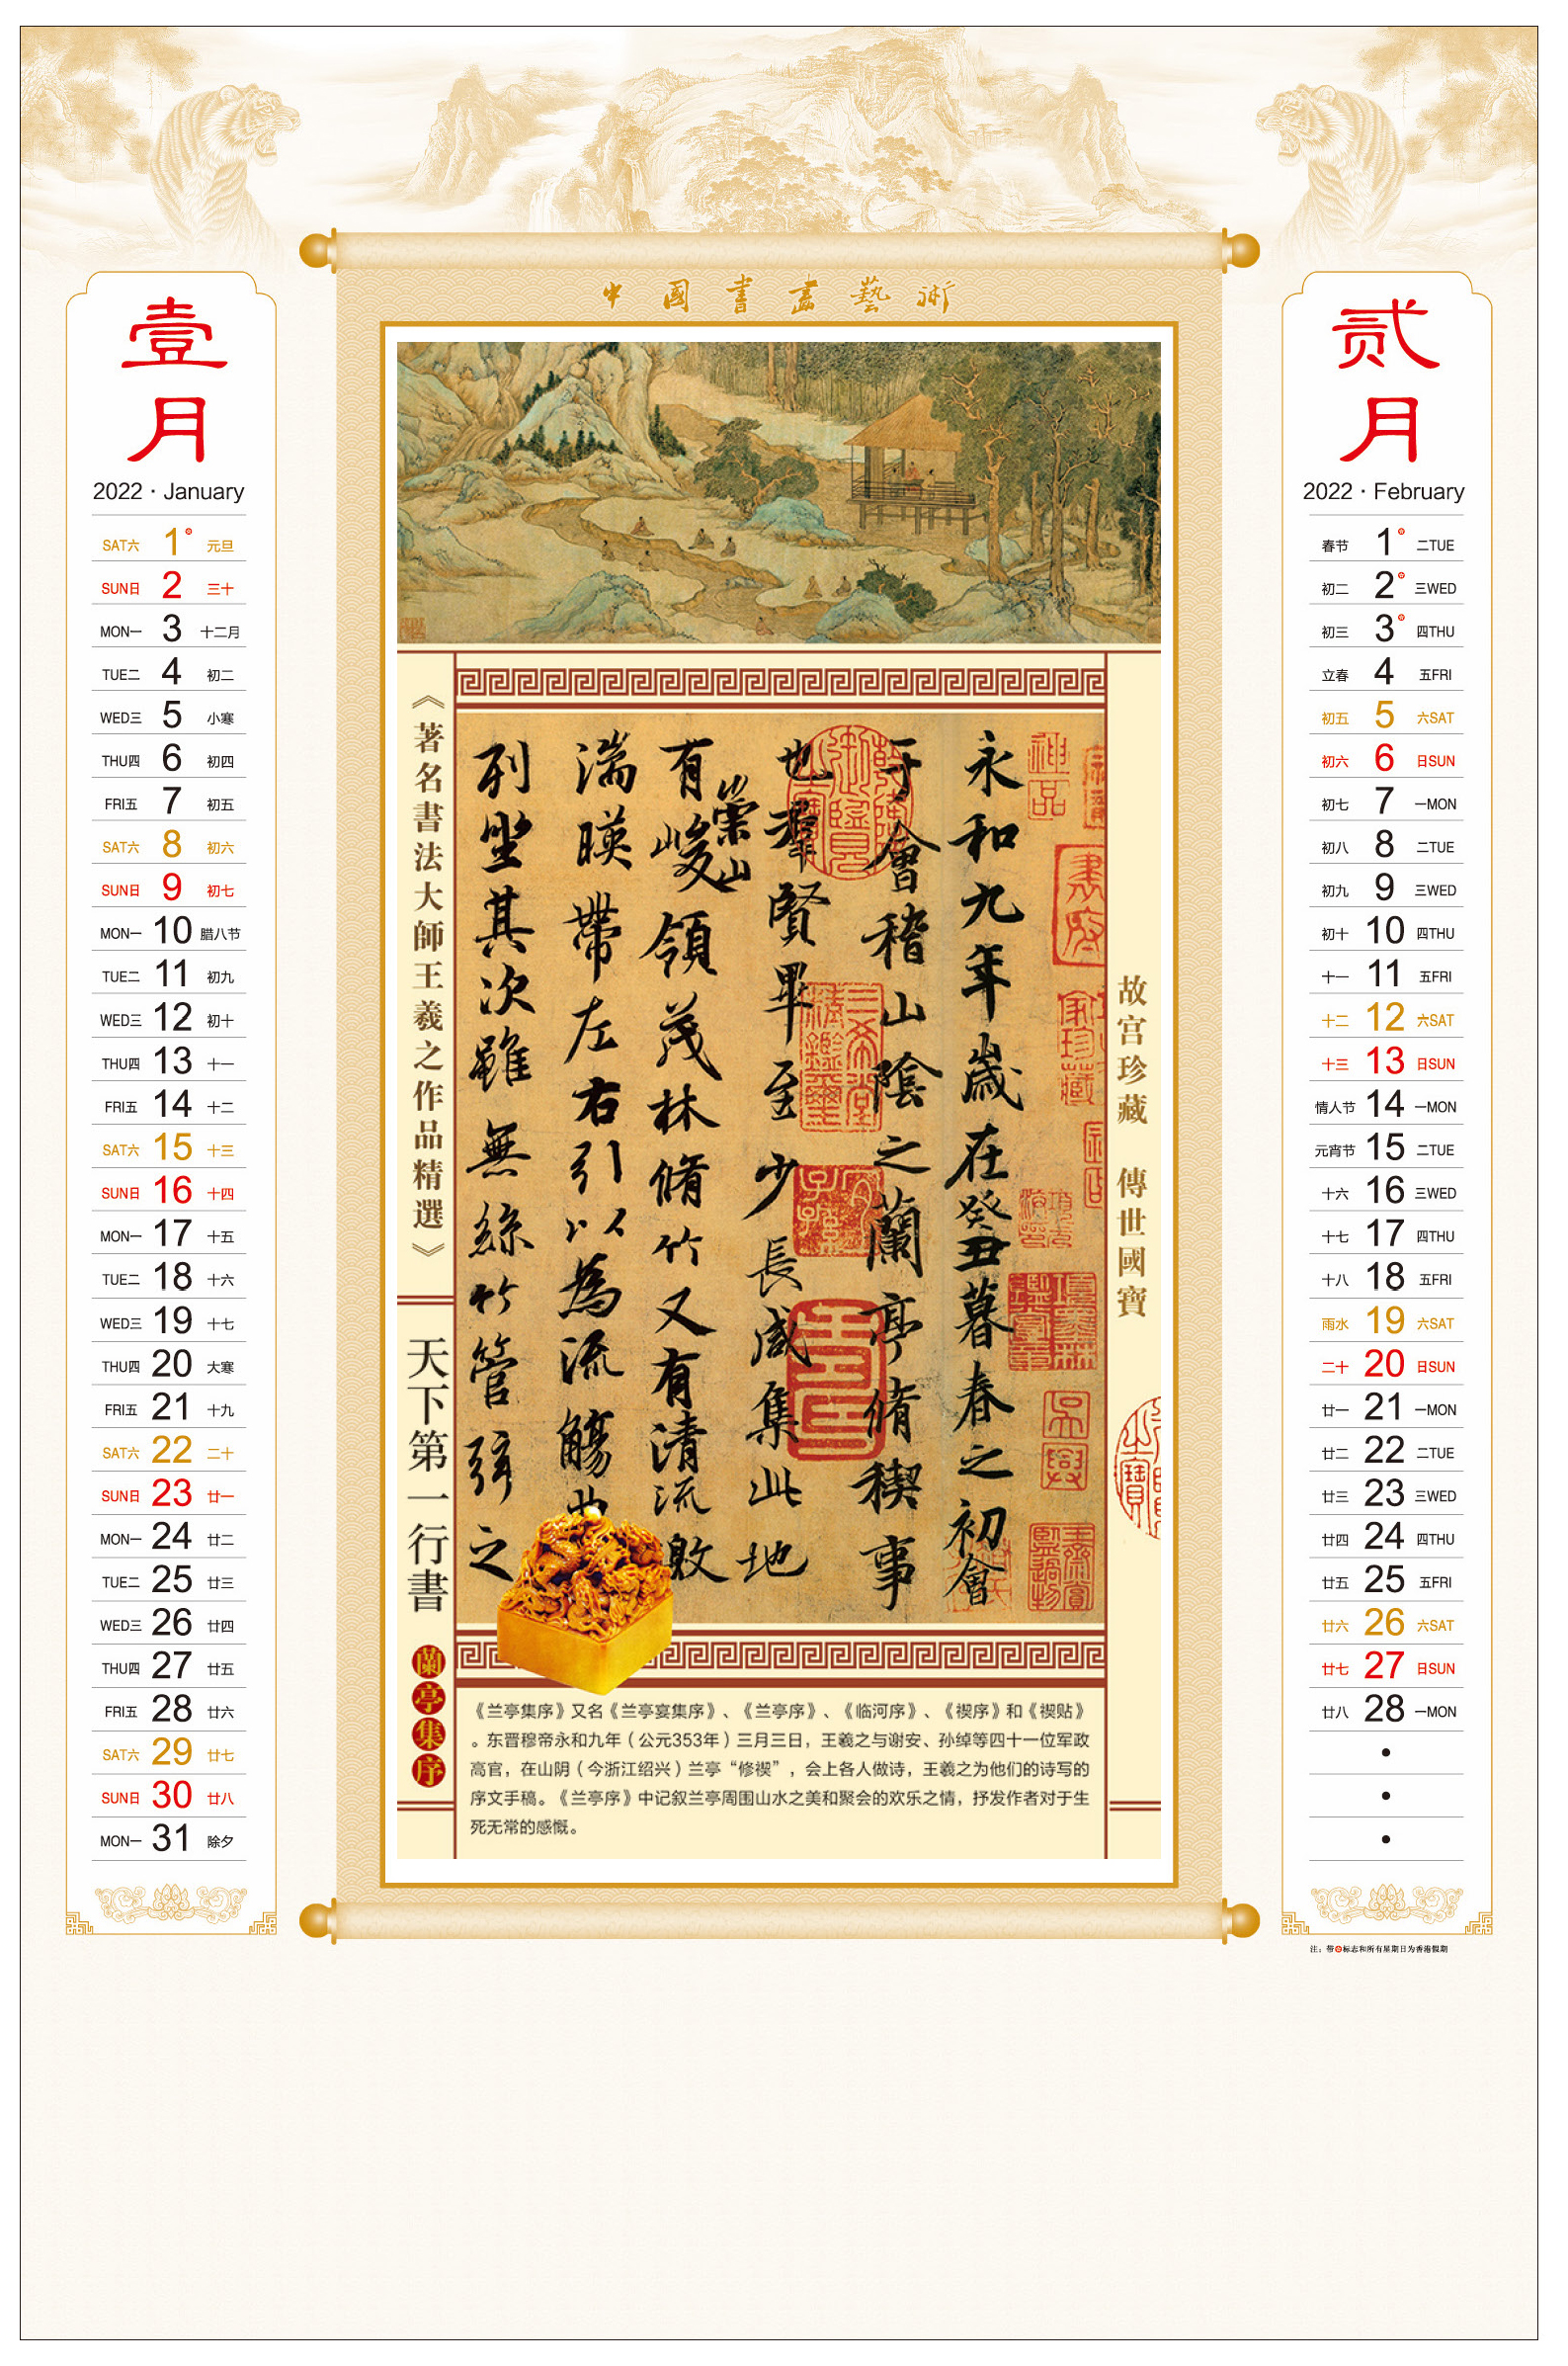 中國書畫藝術
壹月
2022 · January
SAT六 1 元旦
SUN日 2 三十
MON一 3 十二月
TUE二 4 初二
WED三 5 小寒
THU四 6 初四
FRI五 7 初五
SAT六 8 初六
SUN日 9 初七
MON一 10 腊八节
TUE二 11 初九
WED三 12 初十
THU四 13 十一
FRI五 14 十二
SAT六 15 十三
SUN日 16 十四
MON一 17 十五
TUE二 18 十六
WED三 19 十七
THU四 20 大寒
FRI五 21 十九
SAT六 22 二十
SUN日 23 廿一
MON一 24 廿二
TUE二 25 廿三
WED三 26 廿四
THU四 27 廿五
FRI五 28 廿六
SAT六 29 廿七
SUN日 30 廿八
MON一 31 除夕
故宫珍藏 傳世國寶
永和九年歲在癸丑暮春之初會
于會稽山陰之蘭亭脩稧事
也羣賢畢至少長咸集此地
有崇山峻領茂林脩竹又有清流激
湍暎帶左右引以為流觴曲
列坐其次雖無絲竹管弦之
《著名書法大師王羲之作品精選》
天下第一行書
蘭亭集序
《兰亭集序》又名《兰亭宴集序》、《兰亭序》、《临河序》、《禊序》和《禊贴》
。东晋穆帝永和九年（公元353年）三月三日，王羲之与谢安、孙绰等四十一位军政
高官，在山阴（今浙江绍兴）兰亭“修禊”，会上各人做诗，王羲之为他们的诗写的
序文手稿。《兰亭序》中记叙兰亭周围山水之美和聚会的欢乐之情，抒发作者对于生
死无常的感慨。
贰月
2022 · February
春节 1 二TUE
初二 2 三WED
初三 3 四THU
立春 4 五FRI
初五 5 六SAT
初六 6 日SUN
初七 7 一MON
初八 8 二TUE
初九 9 三WED
初十 10 四THU
十一 11 五FRI
十二 12 六SAT
十三 13 日SUN
情人节 14 一MON
元宵节 15 二TUE
十六 16 三WED
十七 17 四THU
十八 18 五FRI
雨水 19 六SAT
二十 20 日SUN
廿一 21 一MON
廿二 22 二TUE
廿三 23 三WED
廿四 24 四THU
廿五 25 五FRI
廿六 26 六SAT
廿七 27 日SUN
廿八 28 一MON
注：带标志和所有星期日为香港假期